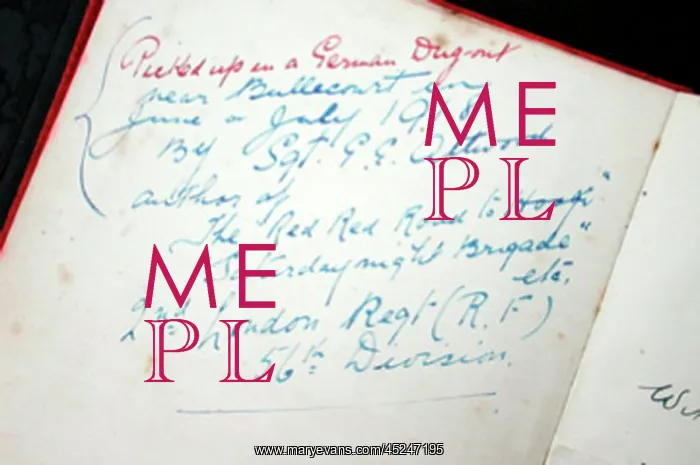 Picked up in a German Dug-out
near Bullecourt in
June or July 19
By Sgt. G.E. Attwood
author of
"The Red Red Road to Hooge"
"Saturday night Brigade"
etc.
2nd London Regt (R.F)
56th Division.
ME
PL
ME
PL
www.maryevans.com/45247195